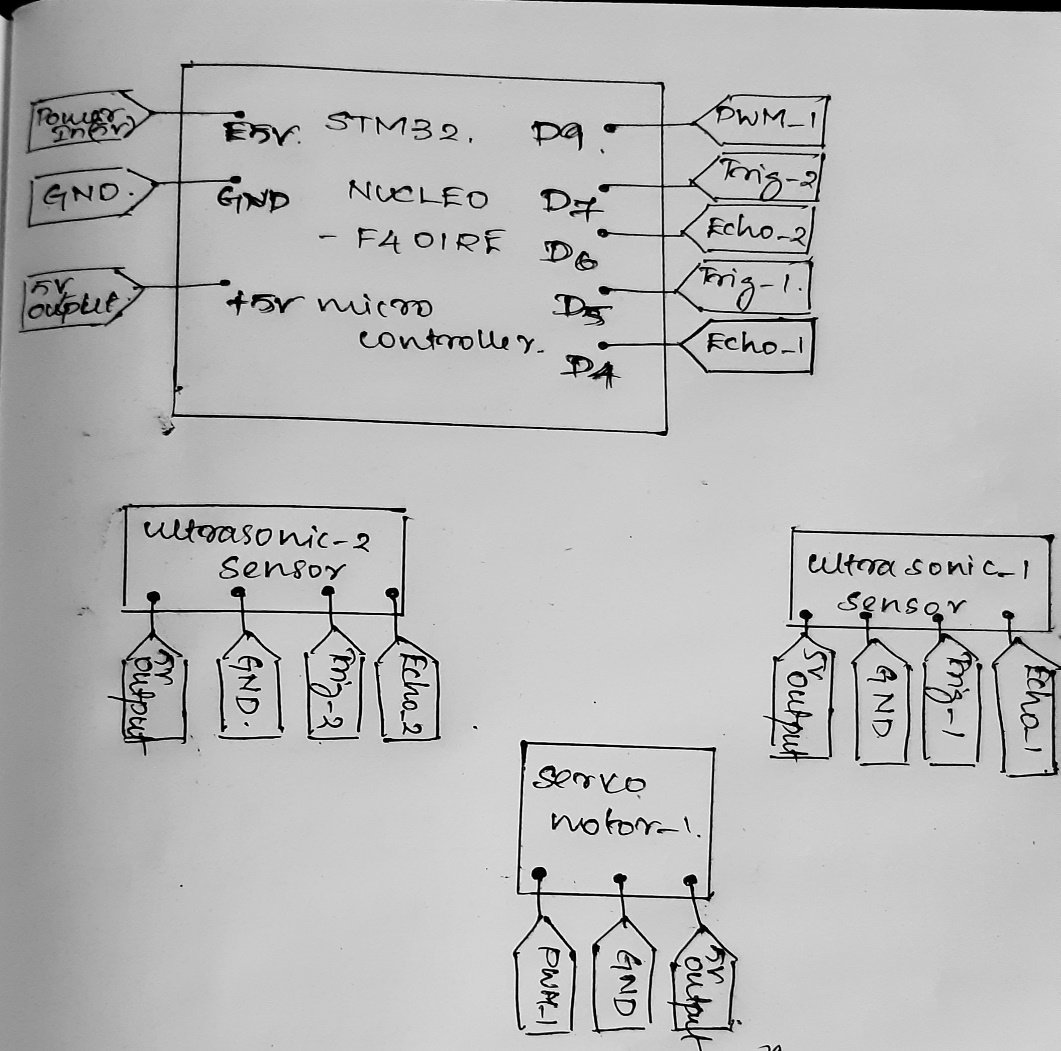 Power
In(5v)
GND.
5v
ouptut.
E5v.
GND
+5v
STM32.
NUCLEO
- F401RE
micro
controller.
D9.
D7
D6
D5
D4
PWM_1
Trig-2
Echo_2
Trig-1.
Echo_1
ultrasonic-2
sensor
5v
output
GND.
Trig-2
Echo_2
ultrasonic_1
sensor
5v output
GND
Trig-1
Echo_1
servo
motor-1.
PWM_1
GND
5v
output